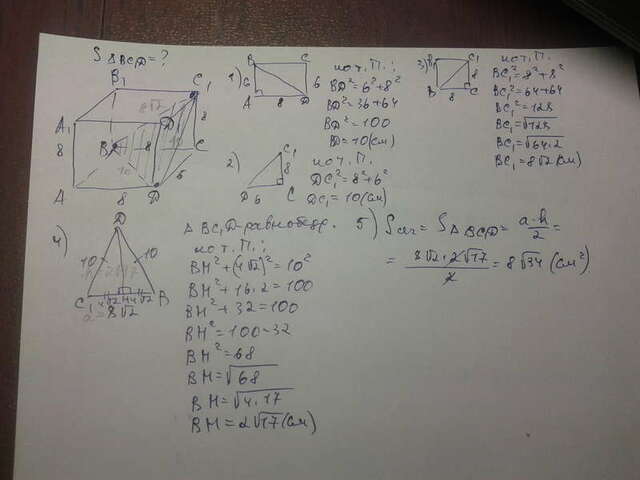 S ΔBC₁D = ?
B₁
C₁
8√2
A₁
D₁
8
8
B
8
C
10
10
6
A
8
D
1)
B
C
6
6
A
8
D
по т. П.:
BD² = 6² + 8²
BD² = 36 + 64
BD² = 100
BD = 10 (см)
2)
C₁
8
D
6
C
по т. П.
DC₁² = 8² + 6²
DC₁ = 10 (см)
3)
B₁
C₁
8
B
8
C
по т. П.
BC₁² = 8² + 8²
BC₁² = 64 + 64
BC₁² = 128
BC₁ = √128
BC₁ = √64·2
BC₁ = 8√2 (см)
4)
D
10
10
h
2√17
C₁
4√2
H
4√2
B
a = 8√2
Δ BC₁D - равнобедр.
по т. П.:
BH² + (4√2)² = 10²
BH² + 16·2 = 100
BH² + 32 = 100
BH² = 100 - 32
BH² = 68
BH = √68
BH = √4·17
BH = 2√17 (см)
5) Sсеч = SΔBC₁D = a·h/2 =
= 8√2·2√17/2 = 8√34 (см²)